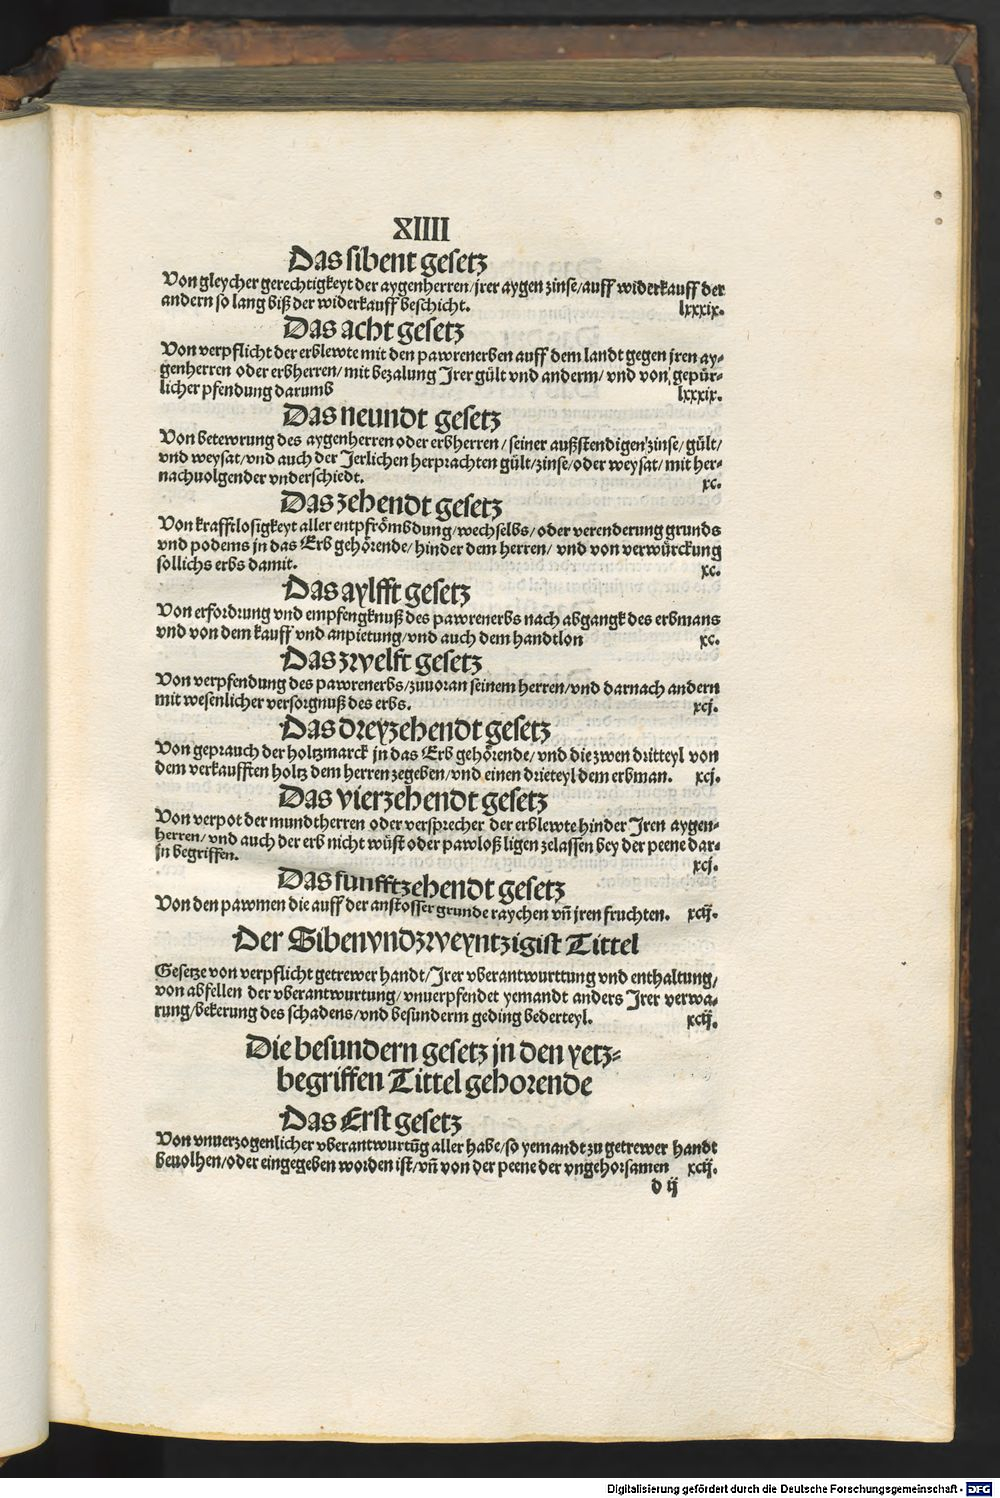 XIIII
Das sibent gesetz
Von gleycher gerechtigkeyt der aygenherren/ jrer aygen zinse/ auff widerkauff der
andern so lang biß der widerkauff beschicht. lxxxix.
Das acht gesetz
Von verpflicht der erblewte mit den pawrenerben auff dem landt gegen jren ay-
genherren oder erbherren/ mit bezalung Jrer gült vnd anderm/ vnd von gepür-
licher pfendung darumb lxxxix.
Das neundt gesetz
Von betewrung des aygenherren oder erbherren/ seiner außstendigen zinse/ gült/
vnd weysat/ vnd auch der Jerlichen herprachten gült/ zinse/ oder weysat/ mit her-
nachuolgender vnderschiedt. xc.
Das zehendt gesetz
Von krafftlosigkeyt aller entpfrömbdung/ wechselbs/ oder verenderung grunds
vnd podems jn das Erb gehörende/ hinder dem herren/ vnd von verwürckung
sollichs erbs damit. xc.
Das aylfft gesetz
Von erfordrung vnd empfengknuß des pawrenerbs nach abgangk des erbmans
vnd von dem kauff vnd anpietung/ vnd auch dem handtlon xc.
Das zwelft gesetz
Von verpfendung des pawrenerbs/ zuuoran seinem herren/ vnd darnach andern
mit wesenlicher versorgnuß des erbs. xcj.
Das dreyzehendt gesetz
Von geprauch der holtzmarck jn das Erb gehörende/ vnd die zwen dritteyl von
dem verkaufften holtz dem herren zegeben/ vnd einen drieteyl dem erbman. xcj.
Das vierzehendt gesetz
Von verpot der mundtherren oder versprecher der erblewte hinder Jren aygen-
herren/ vnd auch der erb nicht wüst oder pawloß ligen zelassen bey der peene dar-
jn begriffen. xcj.
Das funfftzehendt gesetz
Von den pawmen die auff der anstosser grunde raychen vñ jren fruchten. xcij.
Der Sibenvndzweyntzigist Tittel
Gesetze von verpflicht getrewer handt/ Jrer vberantwurttung vnd enthaltung/
von abfellen der vberantwurtung/ vnuerpfendet yemandt anders Jrer verwa-
rung/ bekerung des schadens/ vnd besunderm geding bederteyl. xcij.
Die besundern gesetz jn den yetz-
begriffen Tittel gehorende
Das Erst gesetz
Von vnuerzogenlicher vberantwurtūg aller habe/ so yemandt zu getrewer handt
beuolhen/ oder eingegeben worden ist/ vñ von der peene der vngehorsamen xcij.
d ij
Digitalisierung gefördert durch die Deutsche Forschungsgemeinschaft - DFG